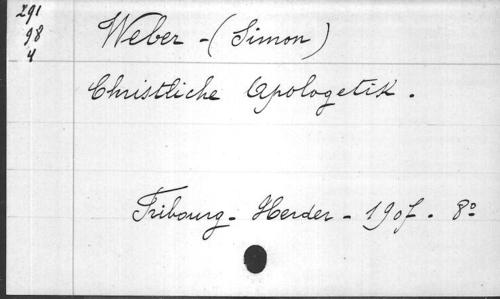 291
98
4
Weber - (Simon)
Christliche Apologetik.
Fribourg - Herder - 1907. 8°